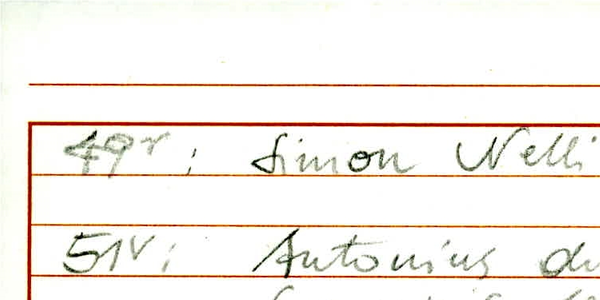 49r: Simon Nelli
51v: Antonius